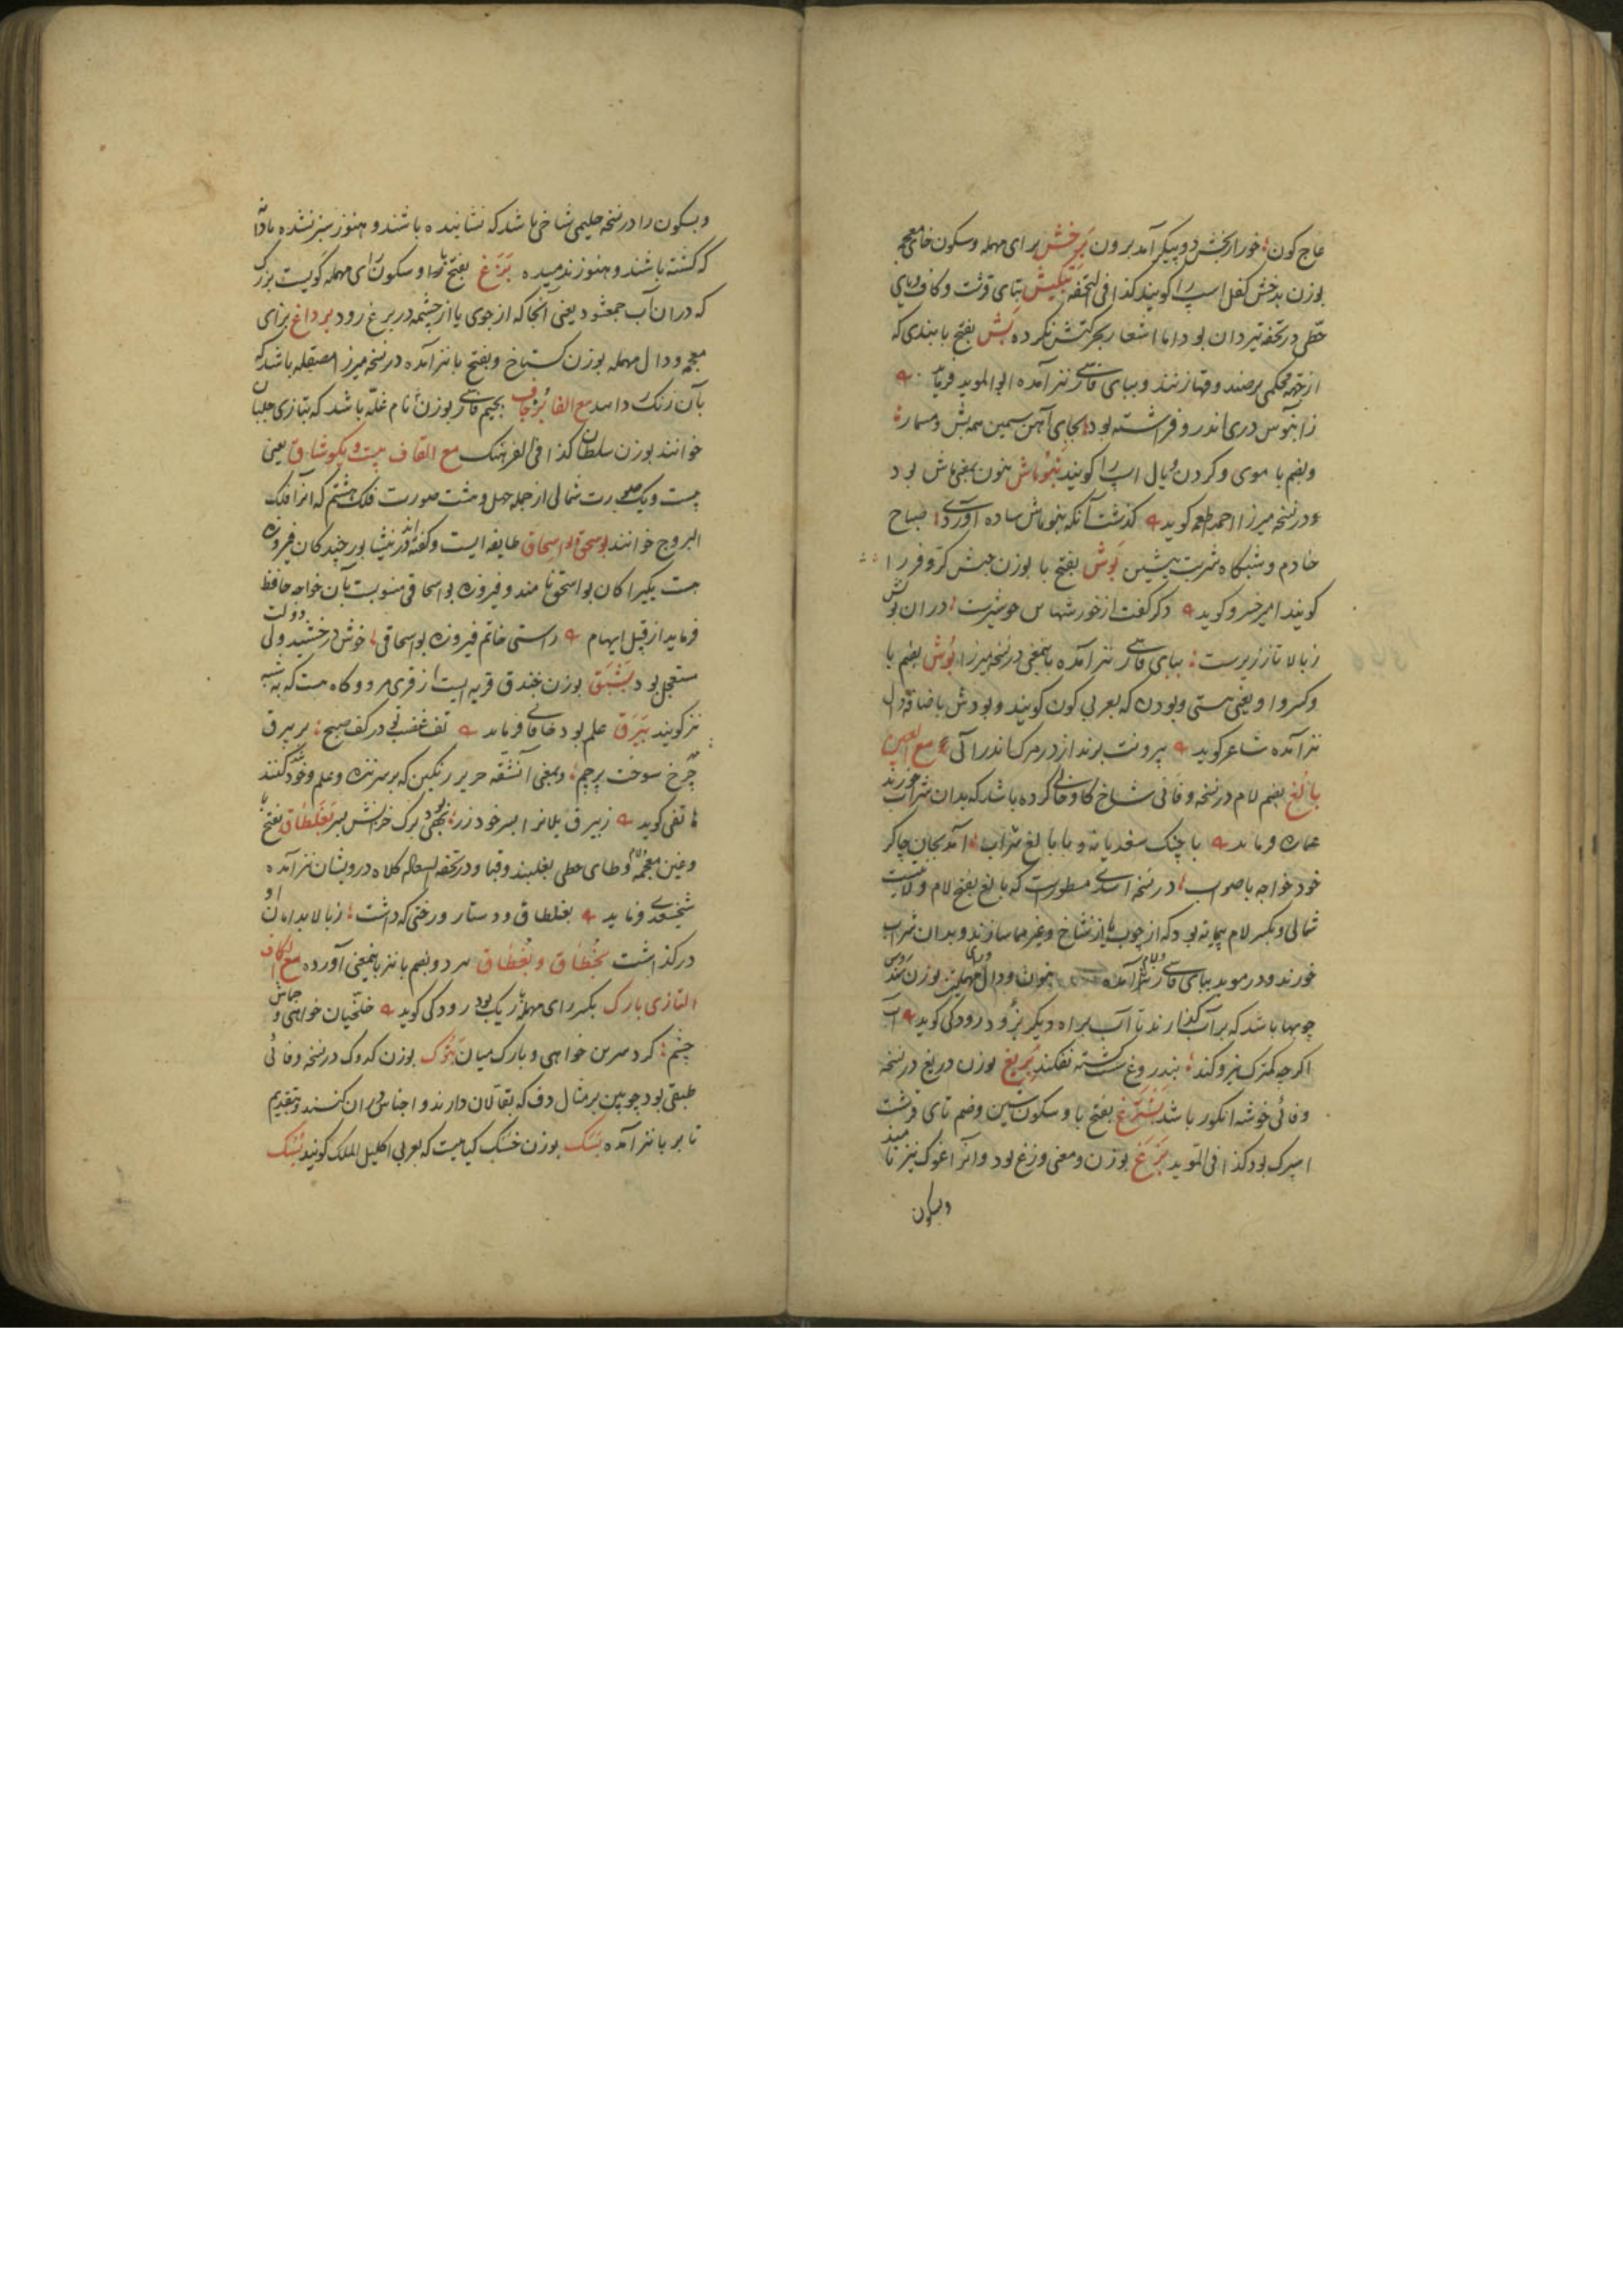 عاج کون خور از بخش دو پیکر آمد برون برخش برای مهمله وسکون خای معجمه
بوزن بدخش کفل اسپ را کویند کذا فی التحفه تبکیش بتای قرشت وکاف ویای
حطی در تحفه تیردان بود اما اشعار بحرکتش نکرده بش بفتح با بندی که
از جهة محکمی برصند وقها زنند و ببای فارسی نیز آمده ابو الموید فرماید
ز آبنوس دری اندر و فراشته بود بجای آهن سیمین همه بش ومسمار
وبضم با موی وکردن ویال اسپ را کویند بنوماش بنون بمعنی ماش بود
ودر نسخه میرزا احمد اطعمه کوید کذشت آنکه بنوماش ساده آوردی صباح
خادم وشبکاه شربت پیشین بوش بفتح با بوزن حبش کر وفر را
کویند امیر خسرو کوید ذکر کفت از خورشهاس خوشترست در ان بوش
ز بالا تا ز زیرست ببای فارسی نیز آمده بایمعنی در نسخه میرزا بوش بضم با
وکسر واو یعنی هستی وبودن که بعربی کون کویند وبودش باضافه دال
نیز آمده شاعر کوید برونت برند از در مرک اندر آئی مع الغین
بالغ بضم لام در نسخه وفائی شاخ کاو خالی کرده باشد که بدان شراب خورند
عماره فرماید با چنک سغدیانه وبا بالغ شراب آمد بخان چاکر
خود خواجه با صواب در نسخه اسدی مسطورست که بالغ بفتح لام ولایتیست
شمالی وبکسر لام پیمانه بود که از چوب یا از شاخ وغیر هما سازند وبدان شراب
خورند ودر موید ببای فارسی نیز آمده بنون ودال وزای مهملتین بوزن
چوبها باشد که بر آب کذارند تا آب براه دیکر برود رودکی کوید آب
اکرچه کمترک نیرو کند بندروغ سست کشته بفکند بریغ بوزن دریغ در نسخه
وفائی خوشه انکور باشد بشترغ بفتح با وسکون شین وضم تای قرشت
اسپرک بود کذا فی الموید بزغ بوزن ومعنی وزغ بود وآنرا غوک نیز نامند
وبسکون
وبسکون را در نسخه حلیمی شاخی باشد که نشانیده باشند وهنوز سبز نشده یا دانه
که کشته باشند وهنوز ندمیده برغ بفتح با وسکون رای مهمله کویست بزرک
که در ان آب جمع شود یعنی آنجا که از جوی یا از چشمه در برغ رود بزداغ بزای
معجمه ودال مهمله بوزن کستاخ وبفتح با نیز آمده در نسخه میرزا مصقله باشد که
بآن زنک زدایند مع الفا بزحاف بجیم فارسی بوزن نام غله باشد که بتازی جلبان
خوانند بوزن سلطان کذا فی الفرهنک مع القاف بیست ویک وشاق یعنی
بیست ویک صورت شمالی از جمله چهل وهشت صورت فلک هشتم که آنرا فلک
البروج خوانند بوسحق وابو اسحاق طایفه ایست وکفته اند در نیشابور چند کان فیروزه
هست یکیرا کان بو اسحق نامند وفیروزه بو اسحاقی منسوبست بآن خواجه حافظ
فرماید از قبیل ایهام راستی خاتم فیروزه بو اسحاقی خوش درخشید ولی دولت
مستعجل بود بشبق بوزن خندق قریه ایست از قرای مرو وکاه هست که به شبه
نیز کویند بیرق علم بود خاقانی فرماید تف غضبی در کف صبح بر بیرق
چرخ سوخت پرچم وبمعنی آن شقه حریر رنکین که بر سر نیزه وعلم وخود کنند
هاتفی کوید ز بیرق یلانرا بسر خود زر بهی برک خزانش بسر بغلطاق بفتح با
وغین معجمه ولام وطای حطی بغلبند وقبا ودر تحفة السعاده کلاه درویشان نیز آمده
شیخ سعدی فرماید بغلطاق ودستار ورختی که داشت ز بالا بدامان او
درکذاشت بخطاق وبغطاق هر دو بضم با نیز باینمعنی آورده مع الکاف
التازی بارک بکسر رای مهمله باریک بود رودکی کوید خلخیان خواهی وجماش
چشم کرد سرین خواهی وبارک میان بتوک بوزن کدوک در نسخه وفائی
طبقی بود چوبین بر مثال دف که بقالان دارند واجناس در ان کنند وبتقدیم
تا بر با نیز آمده بسک بوزن خسک کیاهیست که بعربی اکلیل الملک کویند بشک